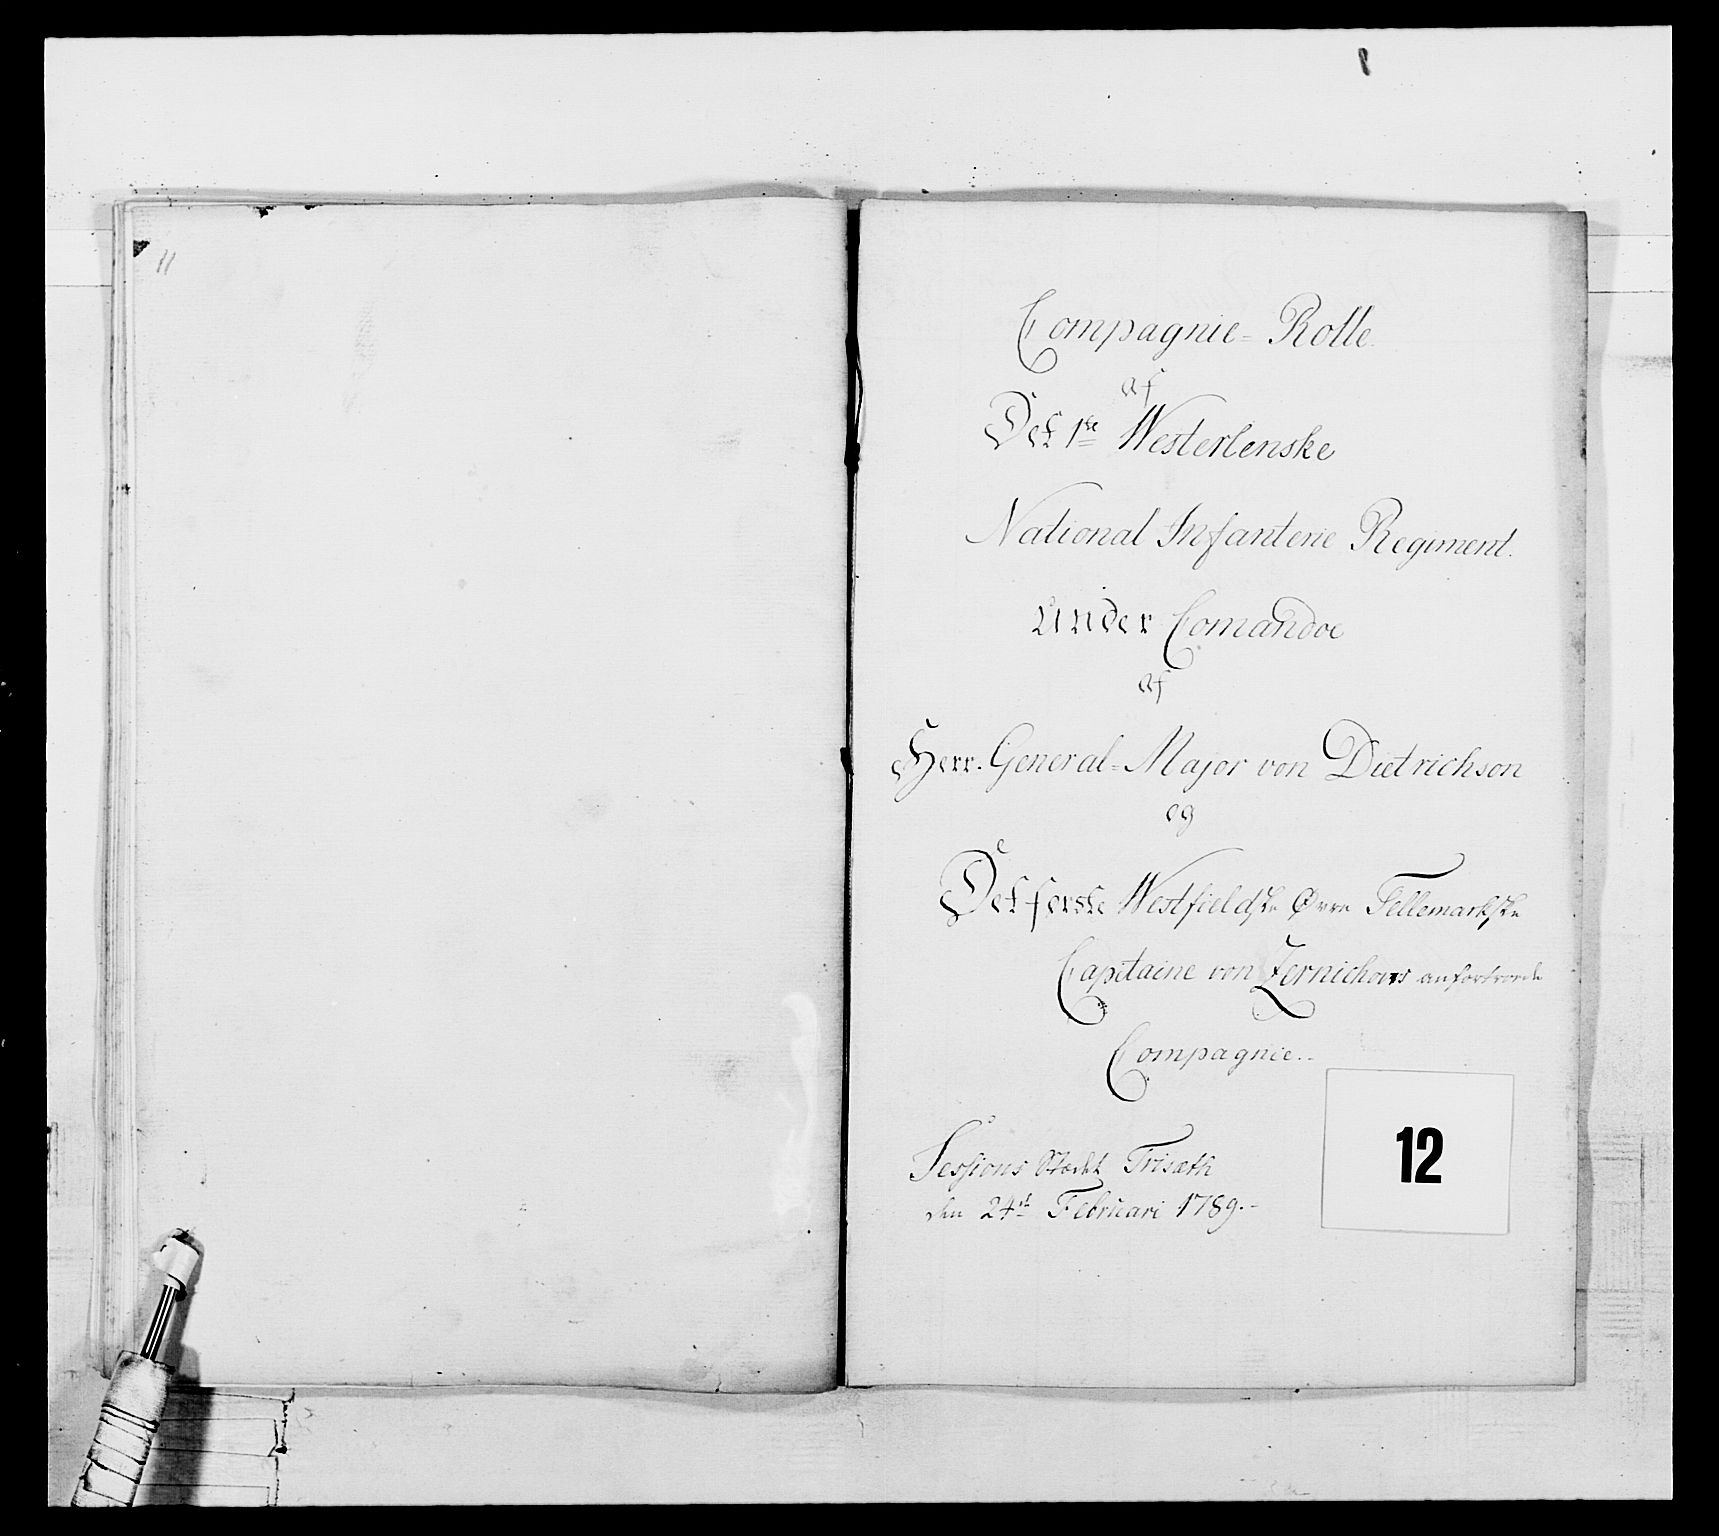 11
Compagnie = Rolle.
af
Det 1ste Westerlenske
National Infanterie Regiment.
Under Comandoe
af
Herr. General = Major von Dietrichson
og
Det ferste Westfieldske Øvre Tellemarkske
Capitaine von Zernichows anfortroede
Compagnie..
Sessions Stædet Trisæth
den 24de Februari 1789.-
12